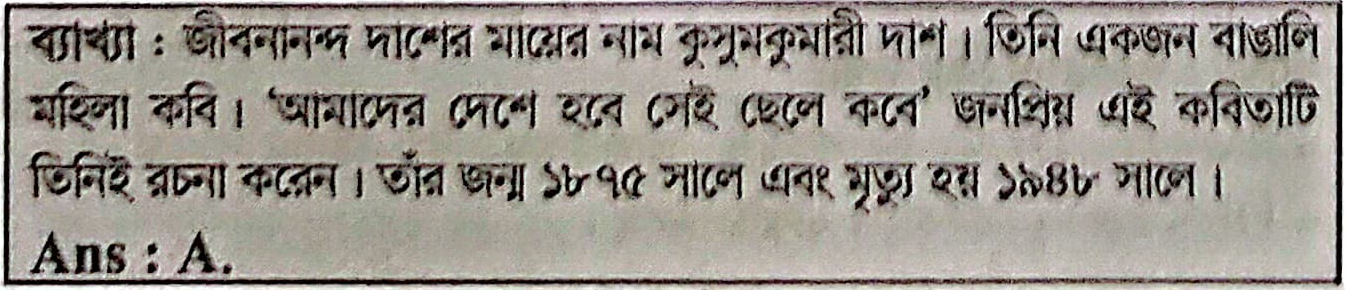 ব্যাখ্যা : জীবনানন্দ দাশের মায়ের নাম কুসুমকুমারী দাশ। তিনি একজন বাঙালি
মহিলা কবি। 'আমাদের দেশে হবে সেই ছেলে কবে' জনপ্রিয় এই কবিতাটি
তিনিই রচনা করেন। তাঁর জন্ম ১৮৭৫ সালে এবং মৃত্যু হয় ১৯৪৮ সালে।
Ans : A.